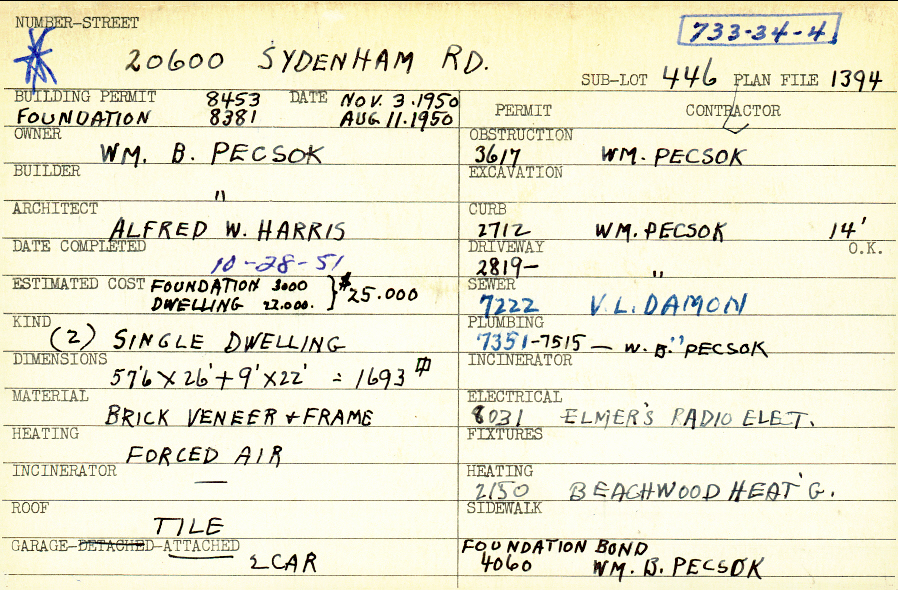 NUMBER-STREET
733-34-4
20600 SYDENHAM RD.
SUB-LOT 446 PLAN FILE 1394
BUILDING PERMIT 8453 DATE NOV. 3.1950
FOUNDATION 8381 AUG 11.1950
PERMIT CONTRACTOR
OWNER
WM. B. PECSOK
OBSTRUCTION
3617 WM. PECSOK
BUILDER
"
EXCAVATION
ARCHITECT
ALFRED W. HARRIS
CURB
2712 WM. PECSOK 14'
DATE COMPLETED
10-28-51
DRIVEWAY O.K.
2819- "
ESTIMATED COST FOUNDATION 3000
DWELLING 22.000. } $25.000
SEWER
7222 V.L. DAMON
KIND
(2) SINGLE DWELLING
PLUMBING
7351-7515 — W. B. " PECSOK
DIMENSIONS
57'6 X 26' + 9' X 22' = 1693
INCINERATOR
MATERIAL
BRICK VENEER + FRAME
ELECTRICAL
8031 ELMER'S RADIO ELET.
HEATING
FORCED AIR
FIXTURES
INCINERATOR
—
HEATING
2150 BEACHWOOD HEAT'G.
ROOF
TILE
SIDEWALK
GARAGE-DETACHED-ATTACHED
2 CAR
FOUNDATION BOND
4060 WM. B. PECSOK